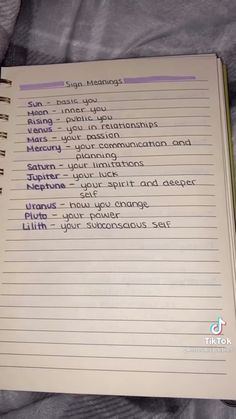 Sign Meanings
Sun - basic you
Moon - inner you
Rising - public you
Venus - you in relationships
Mars - your passion
Mercury - your communication and
planning
Saturn - your limitations
Jupiter - your luck
Neptune - your spirit and deeper
self
Uranus - how you change
Pluto - your power
Lilith - your subconscious self
TikTok